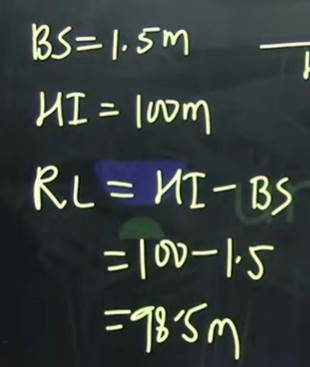 BS=1.5m
HI = 100m
RL = HI-BS
=100-1.5
=98.5m